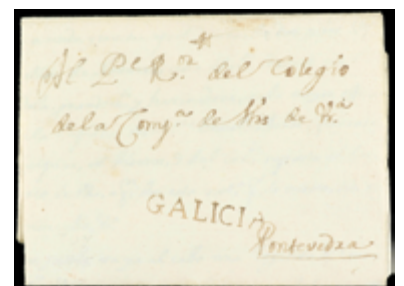 Al P.e R.or del Colegio
de la Comp.a de Jhs de
GALICIA
Pontevedra